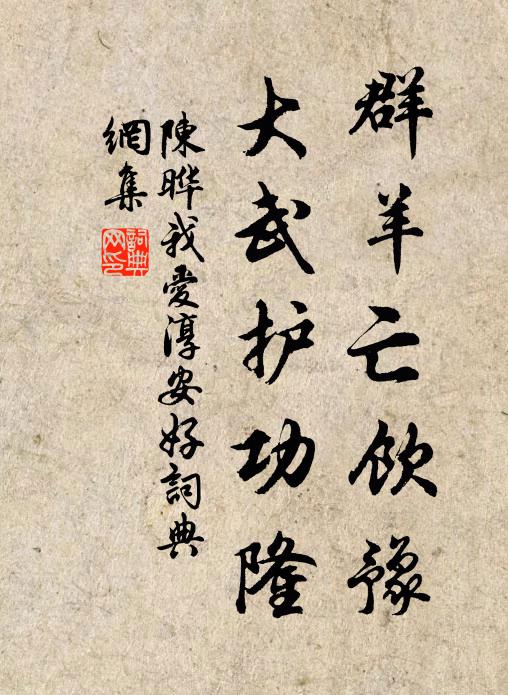 群羊亡饮豫
大武护功隆
陳晔我爱淳安好詞典
網集
詞典
网印